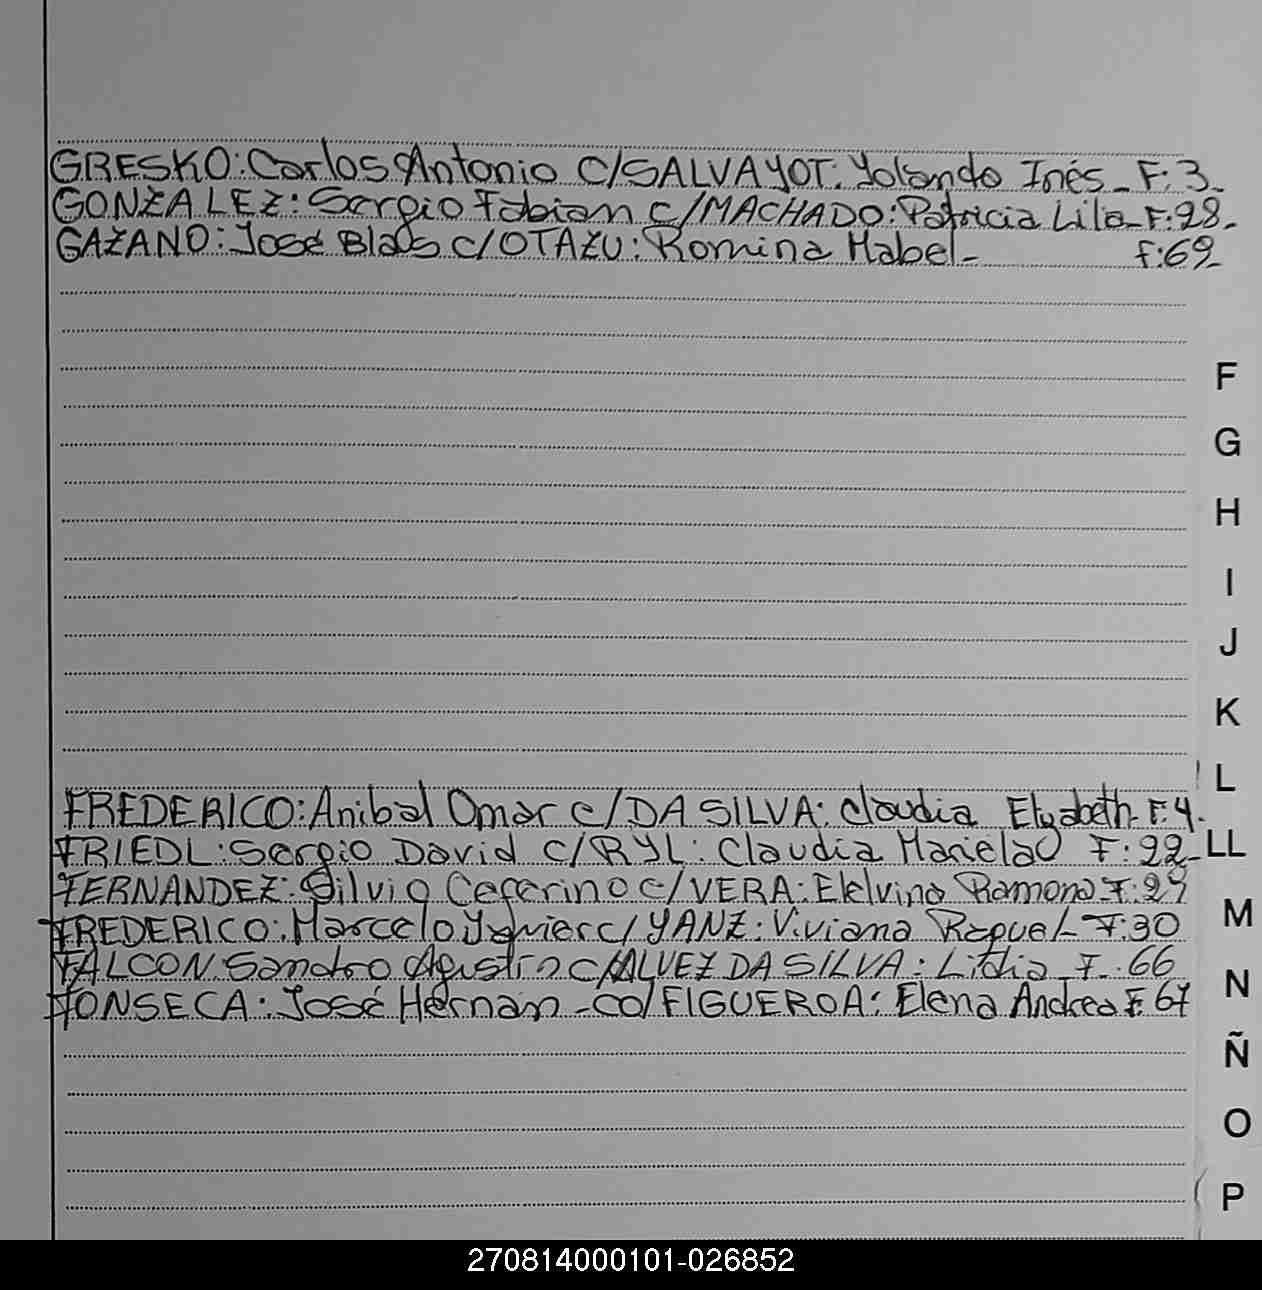 GRESKO: Carlos Antonio C/SALVAYOT: Yolanda Inés_ F: 3_
GONZALEZ: Sergio Fabian C/MACHADO: Patricia Lila_ F: 28_
GAZANO: José Blas C/OTAZU: Romina Mabel_ F: 69_
F
G
H
I
J
K
L
FREDERICO: Anibal Omar C/DA SILVA: Claudia Elizabeth_ F. 4.
LL
FRIEDL: Sergio David C/RYL: Claudia Mariela F: 22_
FERNANDEZ: Silvio Ceferino C/VERA: Elelvina Ramona F: 29
M
FREDERICO: Marcelo Javier C/YANZ: Viviana Raquel_ F: 30
FALCON Sandro Agustin C/ALVEZ DA SILVA: Lidia F. 66
N
FONSECA: José Hernán - CO/FIGUEROA: Elena Andrea F. 67
Ñ
O
P
270814000101-026852